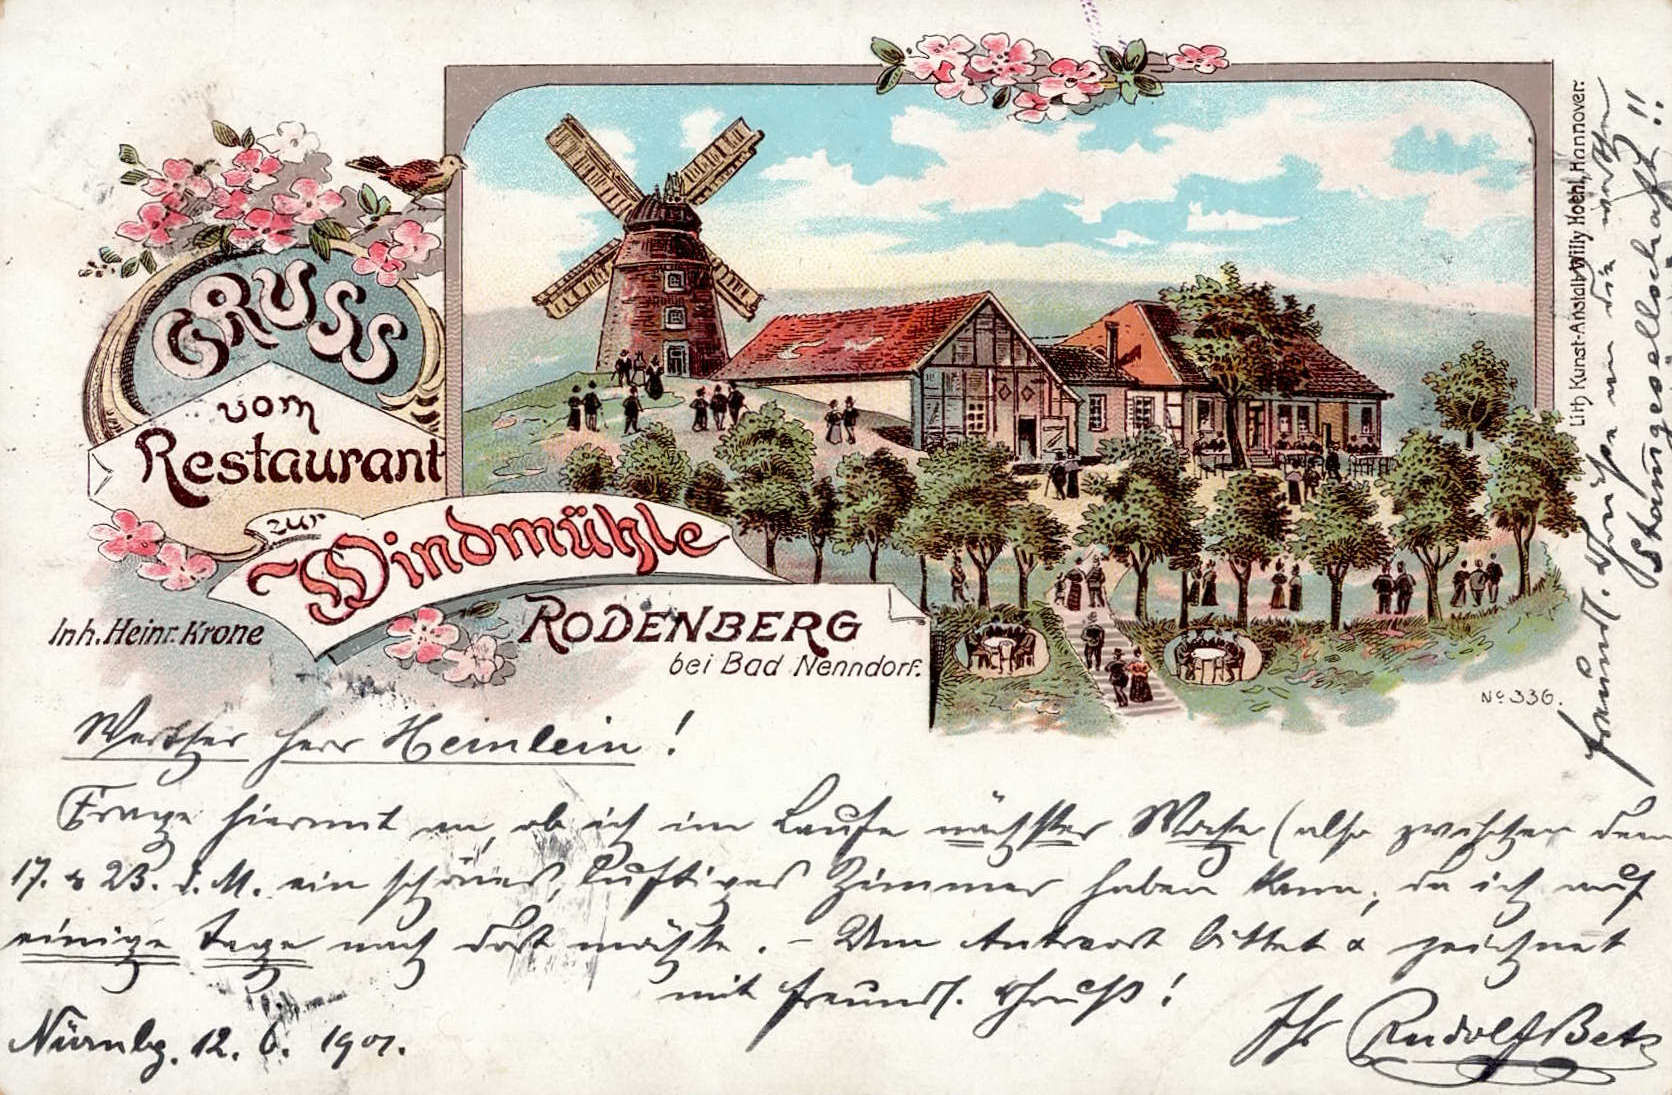 GRUSS
vom
Restaurant
zur
Windmühle
RODENBERG
bei Bad Nenndorf.
Inh. Heinr. Krone
Lith. Kunst-Anstalt Willy Hoehl, Hannover.
No 336.
Werther Herr Heinlein!
Frage hiermit an, ob ich im Laufe nächster Woche (also zwischen dem
17. & 23. d. M. ein schönes, luftiges Zimmer haben kann, da ich auf
einige Tage nach dort möchte. – Um Antwort bittet & zeichnet
mit freundl. Gruß!
Ihr Rudolf Betz
Nürnbg. 12. 6. 1901.
freundl. Grüße an die werthe
Stammgesellschaft!!